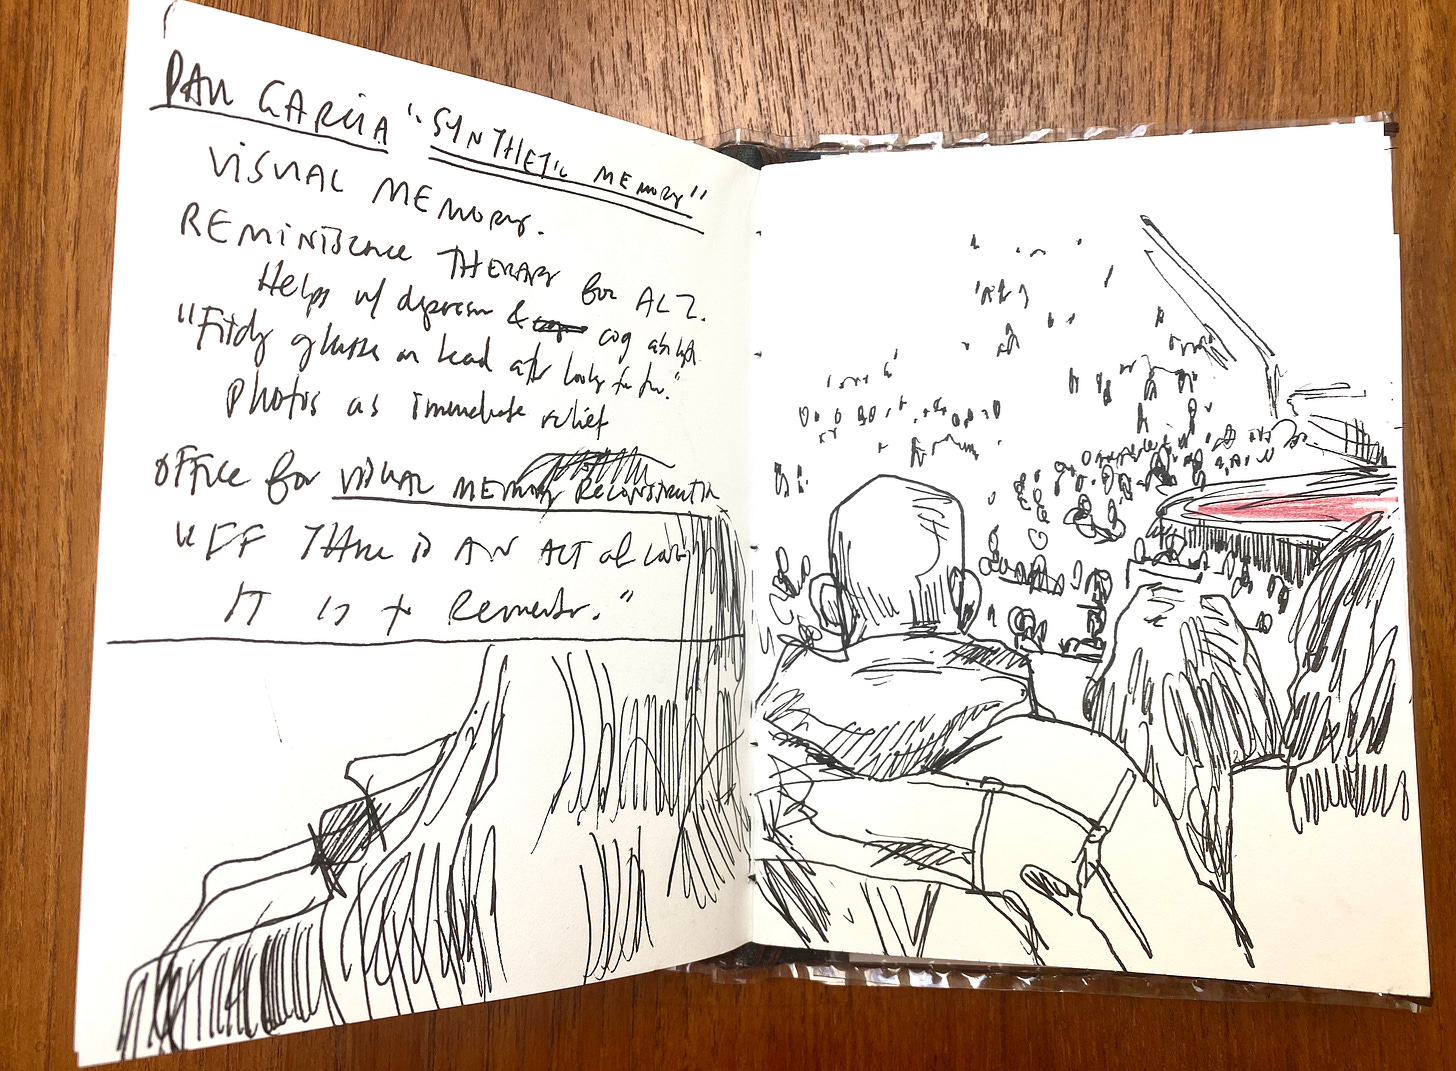 PAU GARCIA "SYNTHETIC MEMORY"
VISUAL MEMORY.
REMINISCENCE THERAPY for ALZ.
Helps w/ depression & cog
glasse on head after looking for
Photos as immediate relief
OFFICE for VISUAL MEMORY RECONSTRUCTION
IF There is AN ACT of
IT is to Remember."